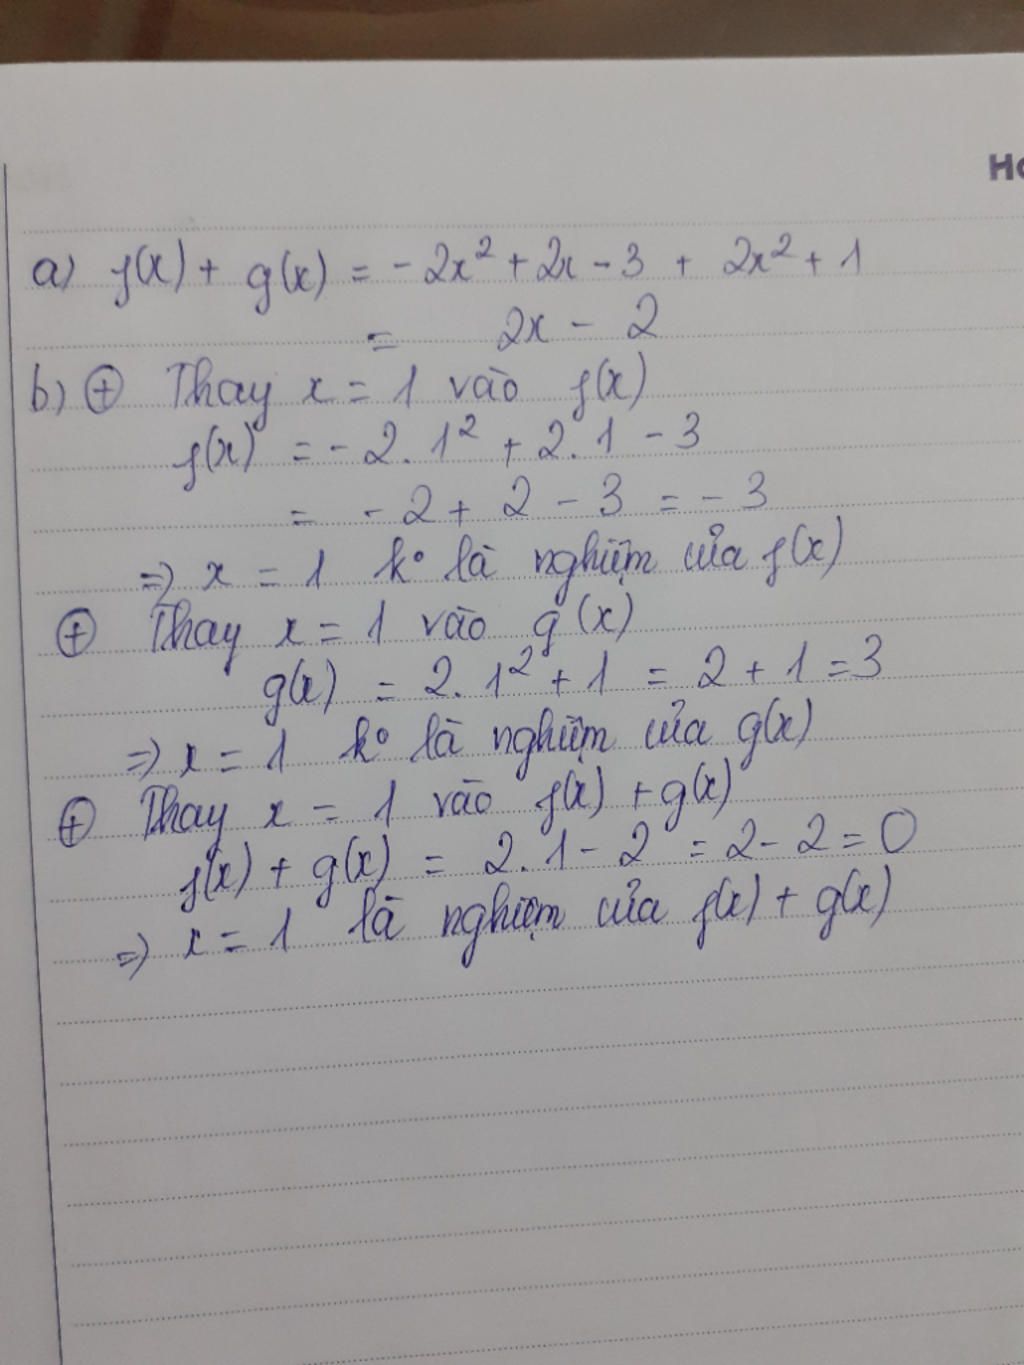 Ho
a) f(x) + g(x) = -2x² + 2x - 3 + 2x² + 1
= 2x - 2
b) ⊕ Thay x = 1 vào f(x)
f(x) = -2.1² + 2.1 - 3
= -2 + 2 - 3 = -3
=> x = 1 k° là nghiệm của f(x)
⊕ Thay x = 1 vào g(x)
g(x) = 2.1² + 1 = 2 + 1 = 3
=> x = 1 k° là nghiệm của g(x)
⊕ Thay x = 1 vào f(x) + g(x)
f(x) + g(x) = 2.1 - 2 = 2 - 2 = 0
=> x = 1 là nghiệm của f(x) + g(x)